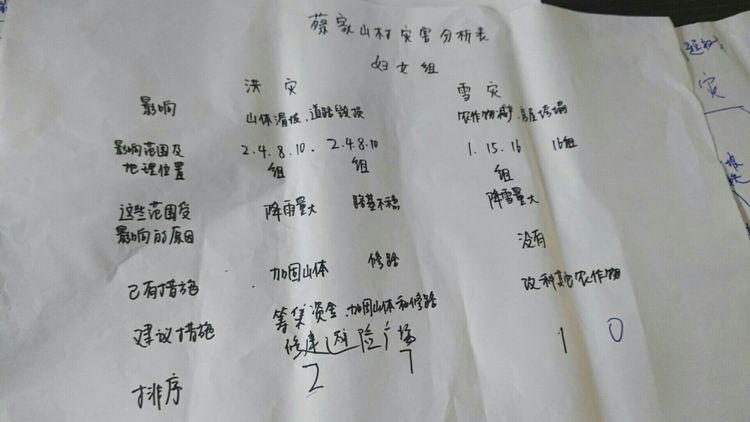 蔡家山村灾害分析表
妇女组
洪灾 雪灾
影响 山体滑坡、道路毁损 农作物 房屋垮塌
影响范围及 2.4.8.10. 2.4.8.10 1.15.16 16组
地理位置 组 组 组
这些范围受 降雨量大 路基不稳 降雪量大
影响的原因
已有措施 加固山体 修路 没有
建议措施 筹集资金、加固山体和修路 改种其它农作物
修建避险广场
排序 2 7 1 0
灾